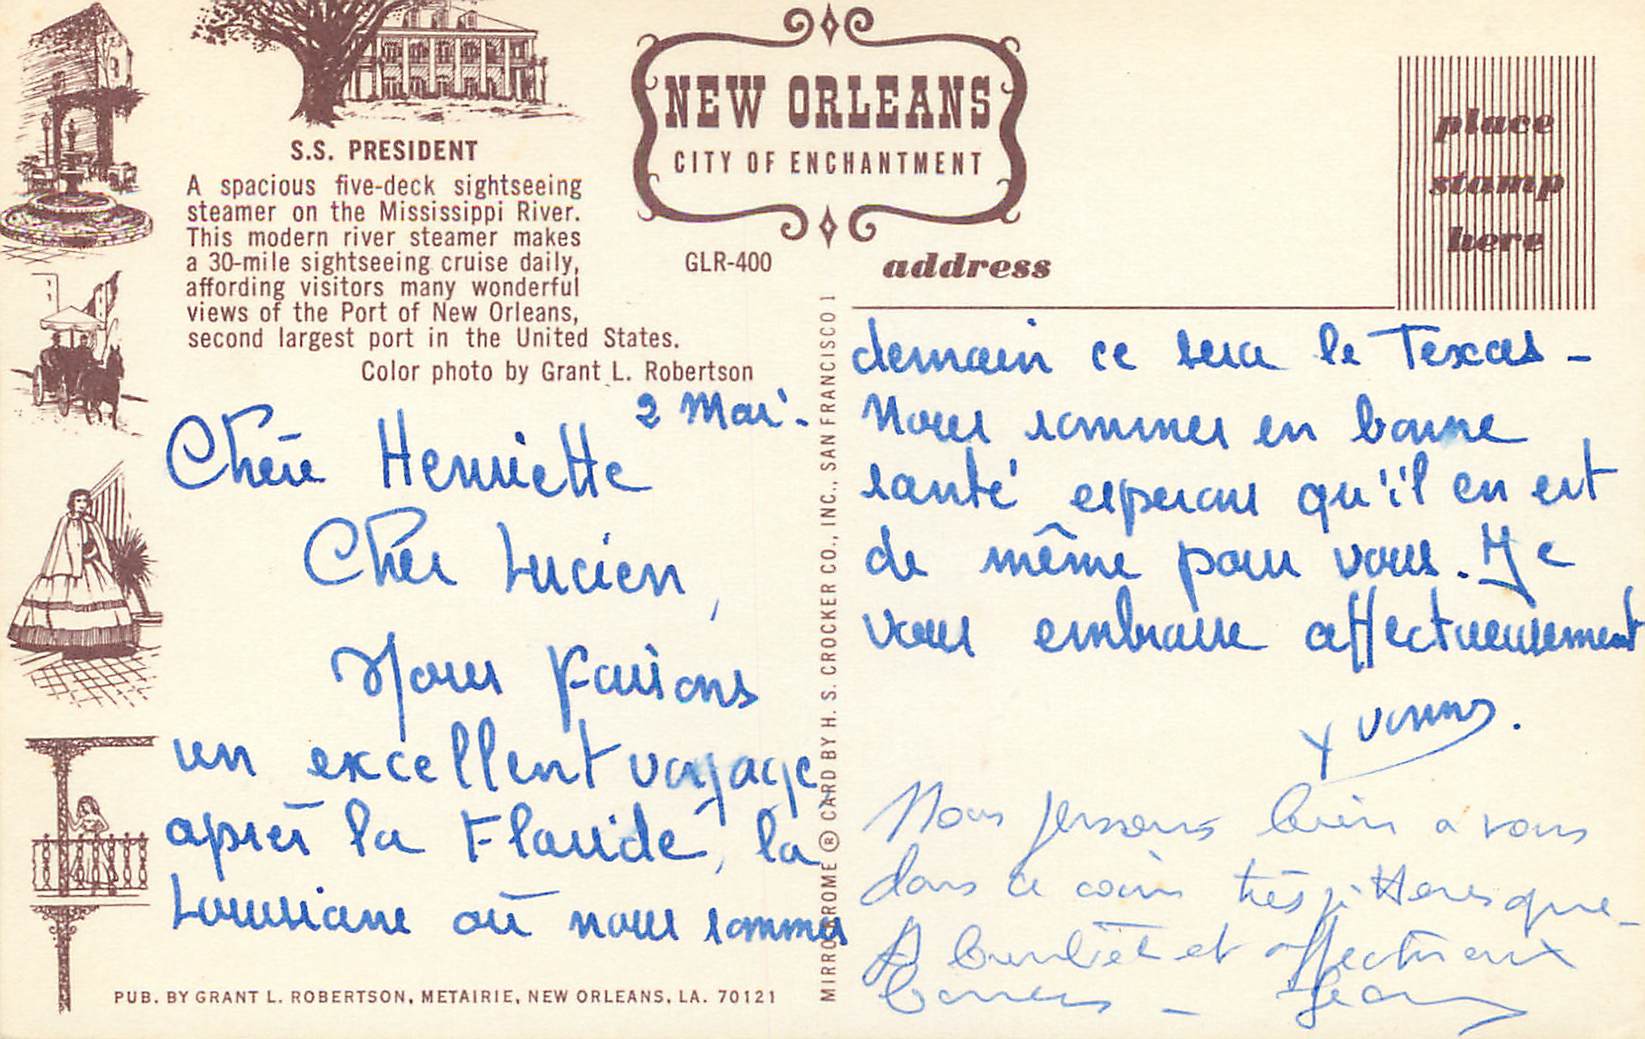 S.S. PRESIDENT
A spacious five-deck sightseeing
steamer on the Mississippi River.
This modern river steamer makes
a 30-mile sightseeing cruise daily,
affording visitors many wonderful
views of the Port of New Orleans,
second largest port in the United States.
Color photo by Grant L. Robertson
NEW ORLEANS
CITY OF ENCHANTMENT
GLR-400
address
place
stamp
here
2 Mai.
Chère Henriette
Cher Lucien,
Nous faisons
un excellent voyage
après la Floride, la
Louisiane où nous sommes
demain ce sera le Texas -
Nous sommes en bonne
santé esperons qu'il en est
de même pour vous. Je
vous embrasse affectueusement
Yvonne.
Nous pensons bien a vous
dans ce coin très pittoresque -
A bientôt et affectueux
Baisers - Jean
MIRRO-KROME ® CARD BY H. S. CROCKER CO., INC., SAN FRANCISCO 1
PUB. BY GRANT L. ROBERTSON, METAIRIE, NEW ORLEANS, LA. 70121